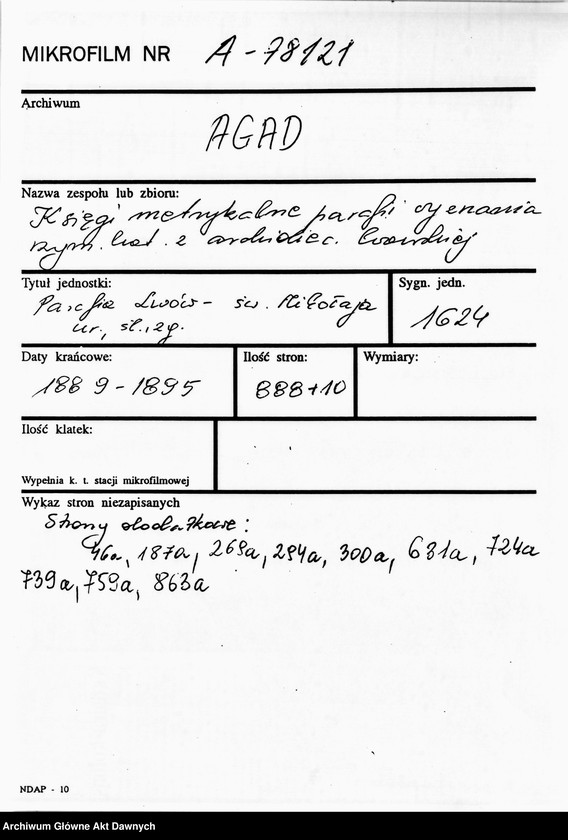 MIKROFILM NR A-78121
Archiwum
AGAD
Nazwa zespołu lub zbioru:
Księgi metrykalne parafii wyznania
rzym. kat. z archidiec. lwowskiej
Tytuł jednostki:
Parafia Lwów - św. Mikołaja
ur., śl., zg.
Sygn. jedn.
1624
Daty krańcowe:
1889-1895
Ilość stron:
888+10
Wymiary:
Ilość klatek:
Wypełnia k. t. stacji mikrofilmowej
Wykaz stron niezapisanych
Strony dodatkowe:
46a, 187a, 269a, 294a, 300a, 631a, 724a
739a, 759a, 863a
NDAP - 10
Archiwum Główne Akt Dawnych